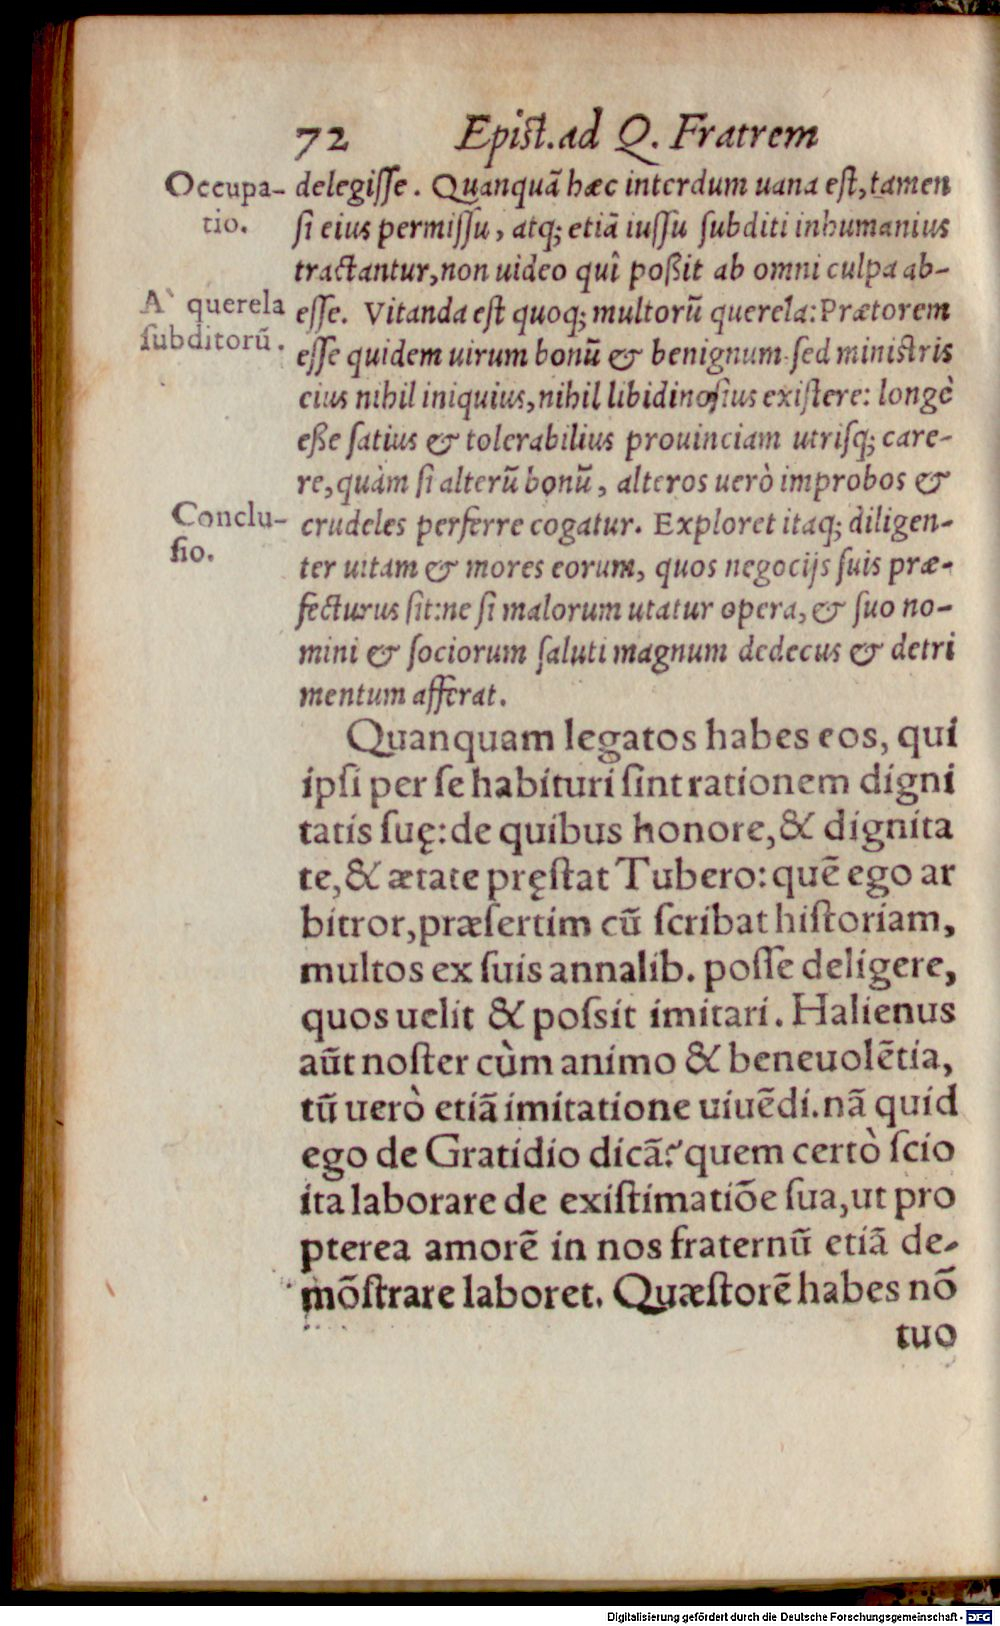 72 Epist. ad Q. Fratrem
Occupa-
tio.
delegisse. Quanquã hæc interdum uana est, tamen
si eius permissu, atq; etiã iussu subditi inhumanius
tractantur, non uideo quî poßit ab omni culpa ab-
A` querela
subditorũ.
esse. Vitanda est quoq; multorũ querela: Prætorem
esse quidem uirum bonũ & benignum. sed ministris
eius nihil iniquius, nihil libidinosius existere: longè
eße satius & tolerabilius prouinciam utrisq; care-
re, quàm si alterũ bonũ, alteros uerò improbos &
Conclu-
sio.
crudeles perferre cogatur. Exploret itaq; diligen-
ter uitam & mores eorum, quos negocijs suis præ-
fecturus sit: ne si malorum utatur opera, & suo no-
mini & sociorum saluti magnum dedecus & detri
mentum afferat.
Quanquam legatos habes eos, qui
ipsi per se habituri sint rationem digni
tatis suę: de quibus honore, & dignita
te, & ætate pręstat Tubero: quẽ ego ar
bitror, præsertim cũ scribat historiam,
multos ex suis annalib. posse deligere,
quos uelit & possit imitari. Halienus
aũt noster cùm animo & beneuolẽtia,
tũ uerò etiã imitatione uiuẽdi. nã quid
ego de Gratidio dicã? quem certò scio
ita laborare de existimatiõe sua, ut pro
pterea amorẽ in nos fraternũ etiã de-
mõstrare laboret. Quæstorẽ habes nõ
tuo
Digitalisierung gefördert durch die Deutsche Forschungsgemeinschaft - DFG